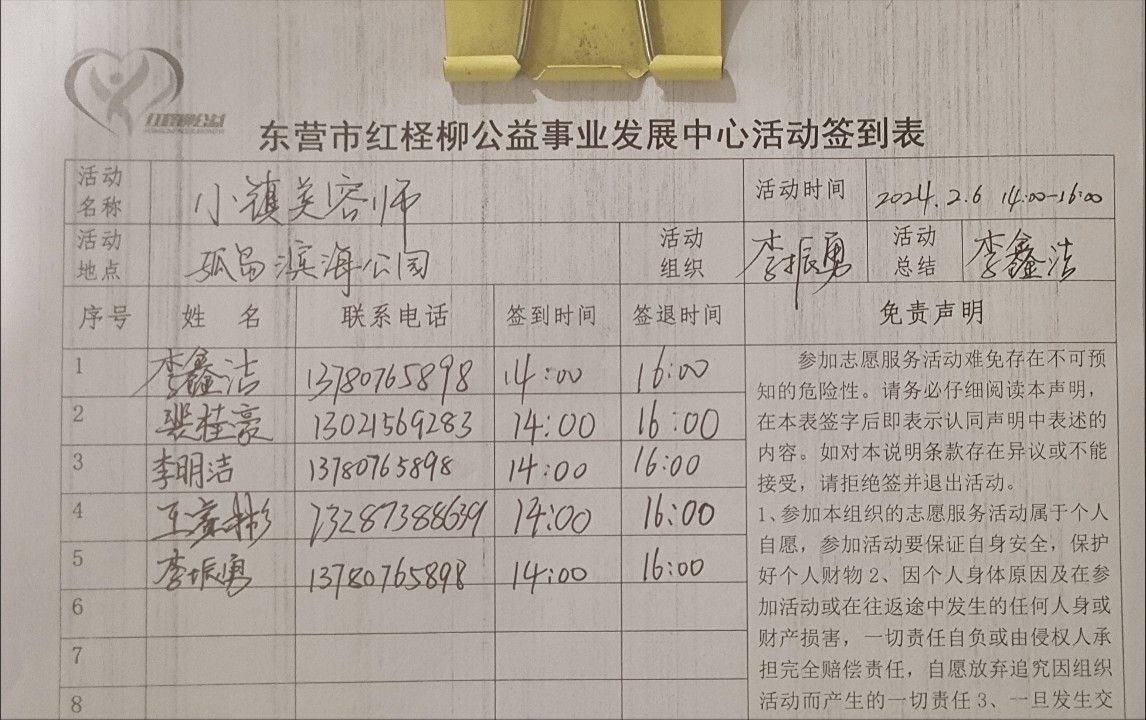 红柽柳公益
东营市红柽柳公益事业发展中心活动签到表
活动名称 小镇美容师 活动时间 2024.2.6 14:00-16:00
活动地点 孤岛滨海公园 活动组织 李振勇 活动总结 李鑫洁
序号 姓 名 联系电话 签到时间 签退时间 免责声明
1 李鑫洁 13780765898 14:00 16:00
2 裴桂豪 13021569283 14:00 16:00
3 李明洁 13780765898 14:00 16:00
4 王 彬 13287388639 14:00 16:00
5 李振勇 13780765898 14:00 16:00
6
7
8
参加志愿服务活动难免存在不可预
知的危险性。请务必仔细阅读本声明，
在本表签字后即表示认同声明中表述的
内容。如对本说明条款存在异议或不能
接受，请拒绝签并退出活动。
1、参加本组织的志愿服务活动属于个人
自愿，参加活动要保证自身安全，保护
好个人财物2、因个人身体原因及在参
加活动或在往返途中发生的任何人身或
财产损害，一切责任自负或由侵权人承
担完全赔偿责任，自愿放弃追究因组织
活动而产生的一切责任3、一旦发生交